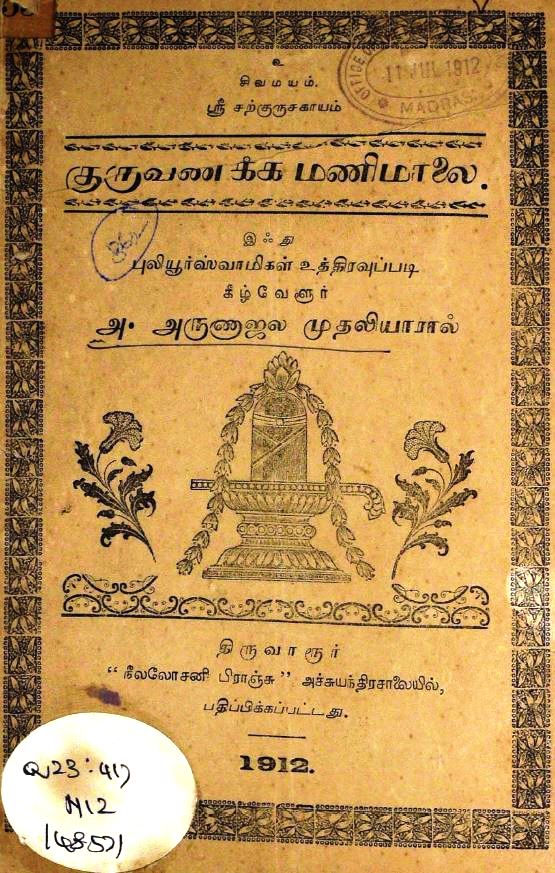 உ
சிவமயம்.
ஸ்ரீ சற்குருசகாயம்
OFFICE
11 JUL 1912
MADRAS
குருவணக்க மணிமாலை.
இஃது
புலியூர்ஸ்வாமிகள் உத்திரவுப்படி
கீழ்வேளூர்
அ. அருணாஜல முதலியாரால்
திருவாரூர்
“நீலலோசனி பிராஞ்சு” அச்சுயந்திரசாலையில்,
பதிப்பிக்கப்பட்டது.
1912.
Q23:417
N12